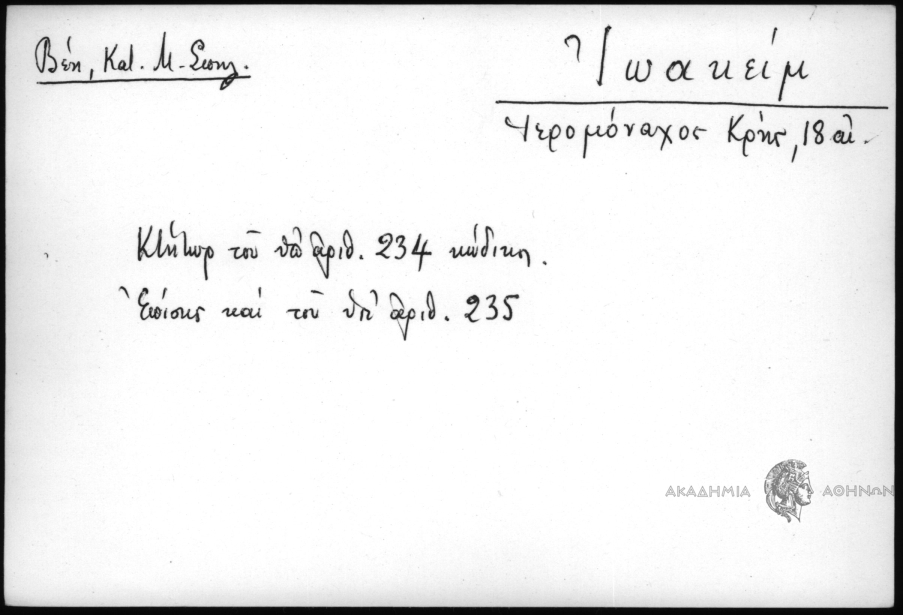 Βέη, Κατ. Μ-Σπηλ.
Ἰωακείμ
Ἱερομόναχος Κρής, 18 αἰ.
Κτήτωρ τοῦ ὑπ' ἀριθ. 234 κώδικος.
Ἐπίσης καί τοῦ ὑπ' ἀριθ. 235
ΑΚΑΔΗΜΙΑ ΑΘΗΝΩΝ